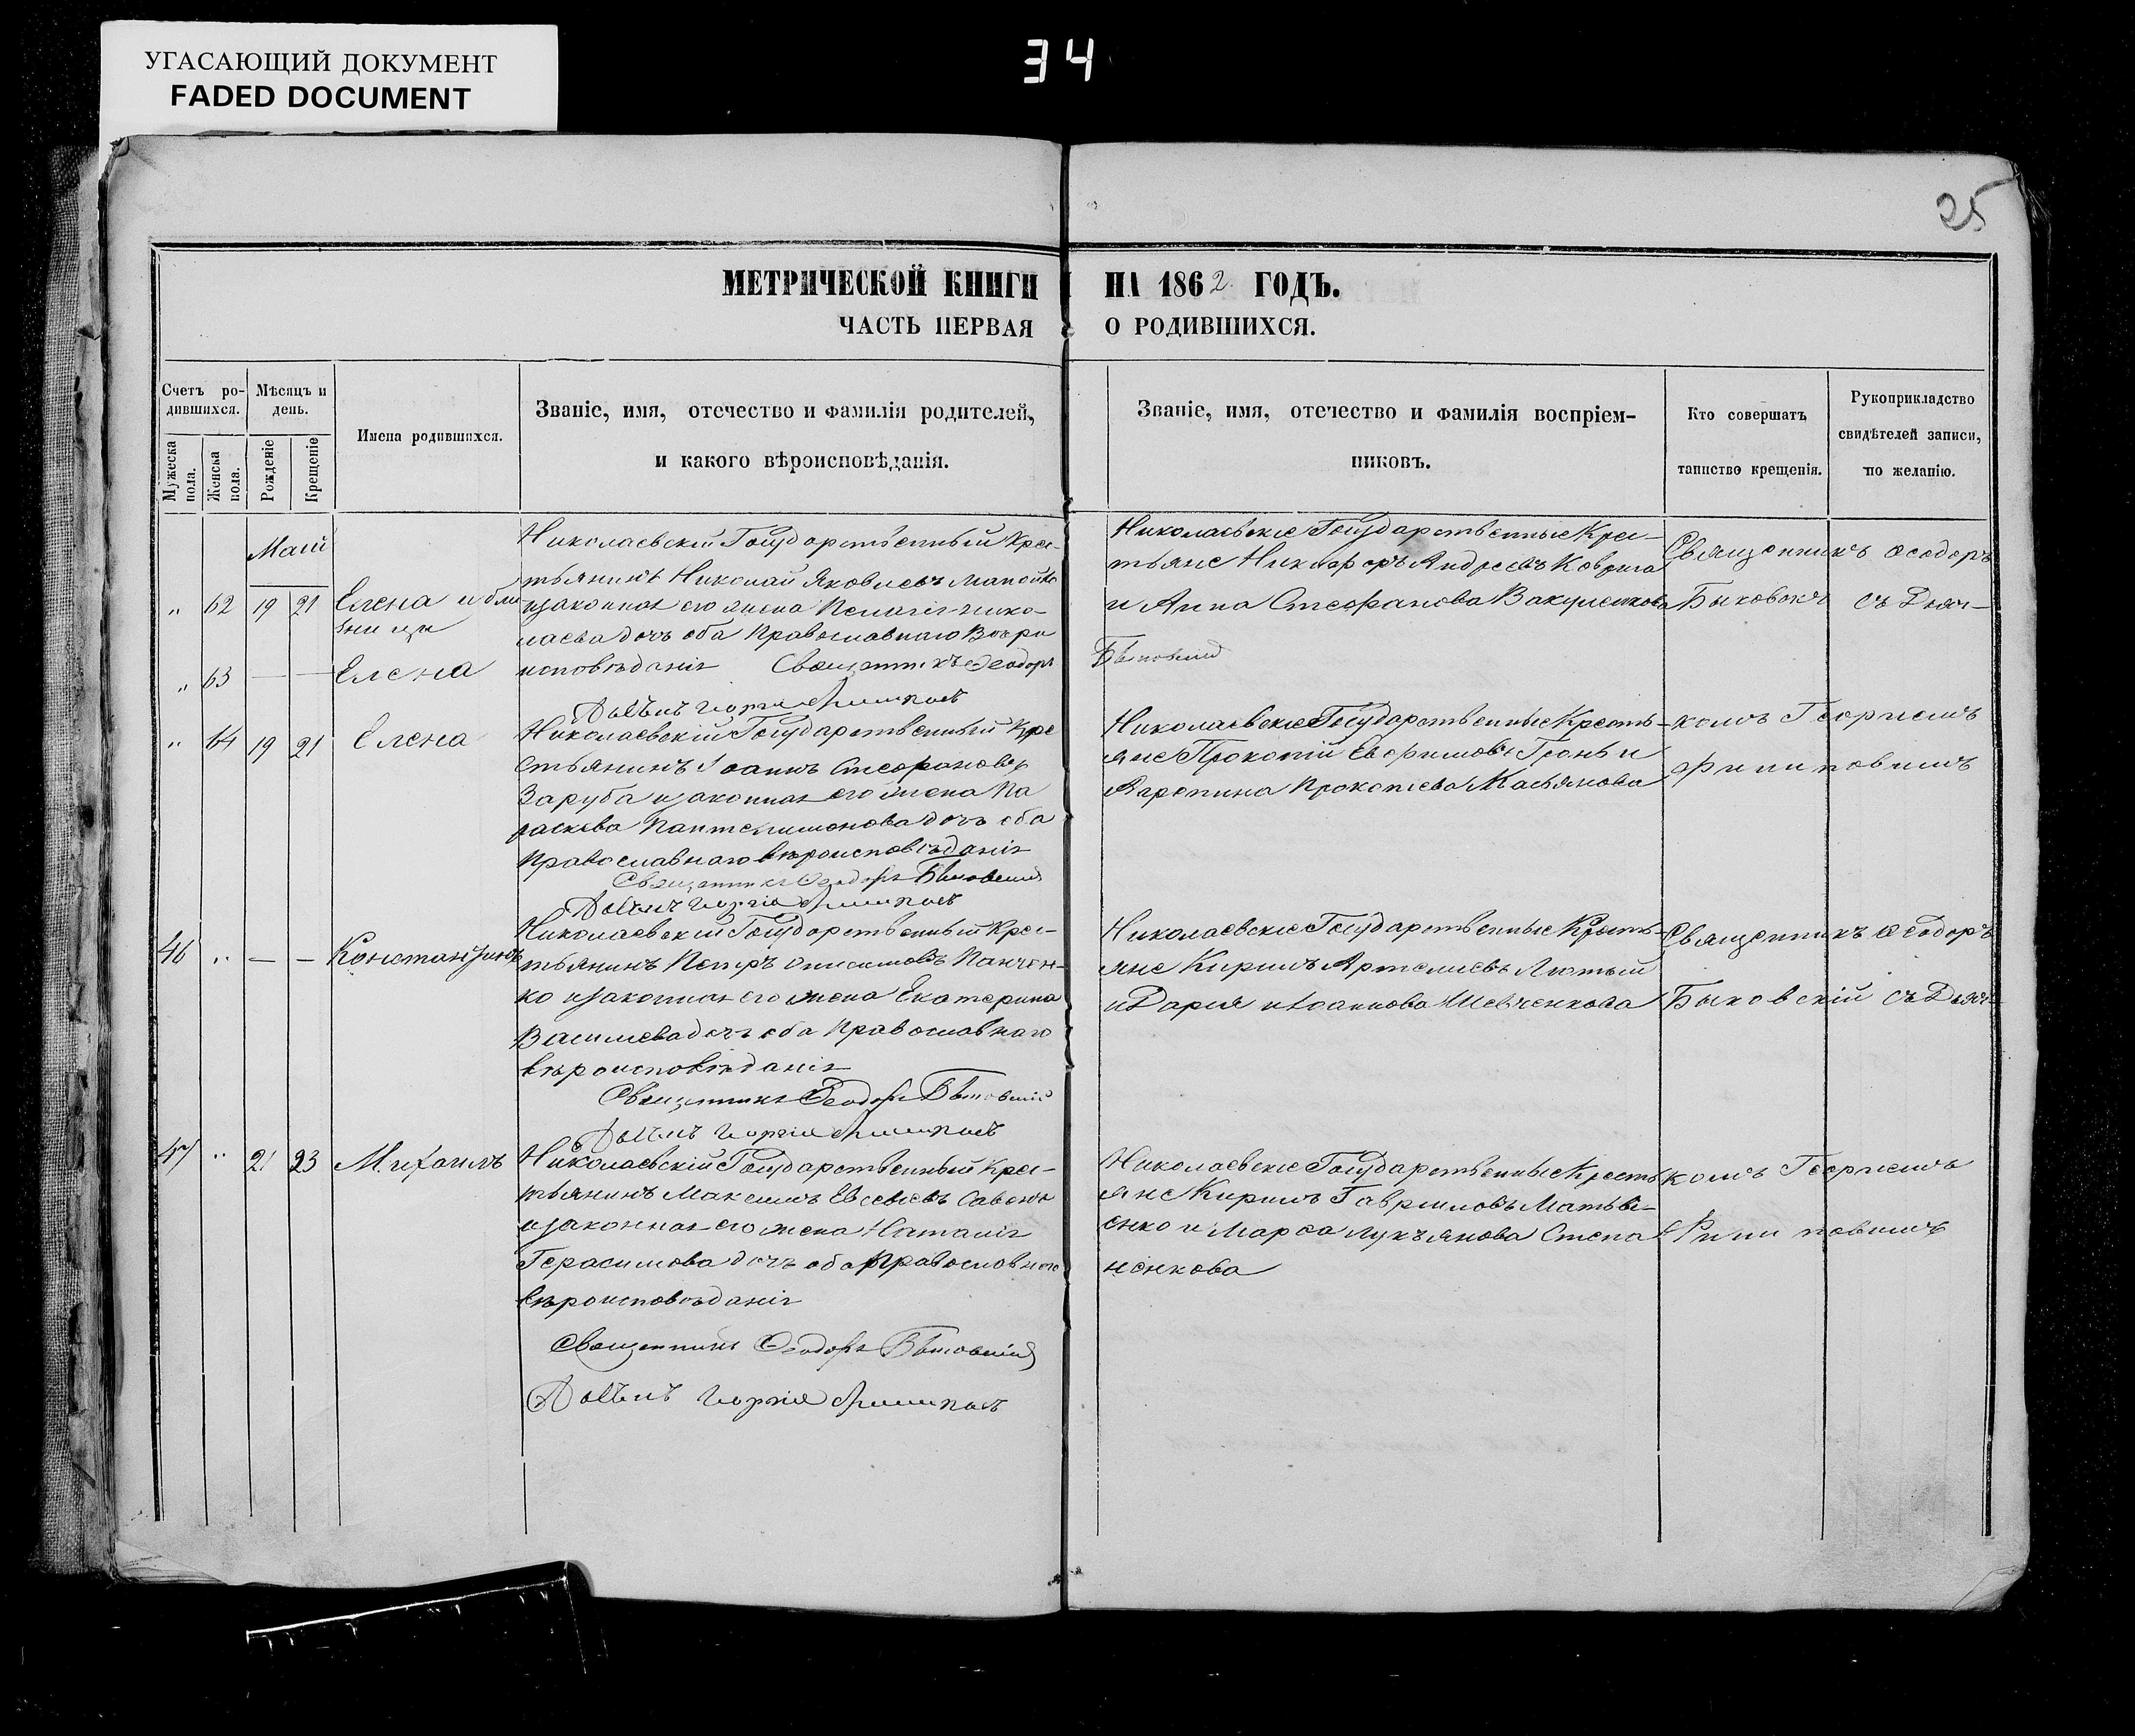 УГАСАЮЩИЙ ДОКУМЕНТ
FADED DOCUMENT
34
25
МЕТРИЧЕСКОЙ КНИГИ НА 1862 ГОДЪ.
ЧАСТЬ ПЕРВАЯ О РОДИВШИХСЯ.
Счетъ ро-
дившихся.
Мужеска пола.
Женска пола.
Мѣсяцъ и
день.
Рожденіе
Крещеніе
Имена родившихся.
Званіе, имя, отечество и фамилія родителей,
и какого вѣроисповѣданія.
Званіе, имя, отечество и фамилія воспріем-
никовъ.
Кто совершалъ
таинство крещенія.
Рукоприкладство
свидѣтелей записи,
по желанію.
Маій
„ 62 19 21 Елена и бли
зницы
„ 63 — — Елена
Николаевскій Государственный Крес-
тьянинъ Николай Яковлевъ
и законная его жена Пелагія Нико-
лаева дочь оба Православнаго Вѣро
исповѣданія Священникъ Ѳеодоръ
Николаевскіе Государственные Крес-
тьяне Никифоръ Андреевъ Коврига
и Анна Стефанова Вакуленкова
Священникъ Ѳеодоръ
Быковскій съ Дьяч-
„ 64 19 21 Елена
Николаевскій Государственный Кре
стьянинъ Іоаннъ Стефановъ
Заруба и законная его жена Па
раскева Пантелимонова дочь оба
Православнаго вѣроисповѣданія
Священникъ Ѳеодоръ Быковскій
Николаевскіе Государственные Кресть-
яне Прокопій Евфимовъ Гронь и
Прокопіева Касьянова
комъ Георгіемъ
Филиповимъ
46 „ — — Константинъ
Николаевскій Государственный Крес-
тьянинъ Петръ Онисимовъ Панчен-
ко и законная его жена Екатерина
Василиева дочь оба Православнаго
вѣроисповѣданія
Священникъ Ѳеодоръ Быковскій
Николаевскіе Государственные Кресть-
яне Кирилъ Артемиевъ Лютый
и Дарія Иоаннова Шевченкова
Священникъ Ѳеодоръ
Быковскій съ Дьяч-
47 „ 21 23 Михаилъ
Николаевскій Государственный Крес-
тьянинъ Максимъ Евсевіевъ Савенко
и законная его жена Наталія
Герасимова дочь оба Православнаго
вѣроисповѣданія
Священникъ Ѳеодоръ Быковскій
Николаевскіе Государственные Кресть
яне Кирилъ Гавриловъ Матьве-
енко и Марфа Лукъянова Степа
ненкова
комъ Георгіемъ
Филиповимъ